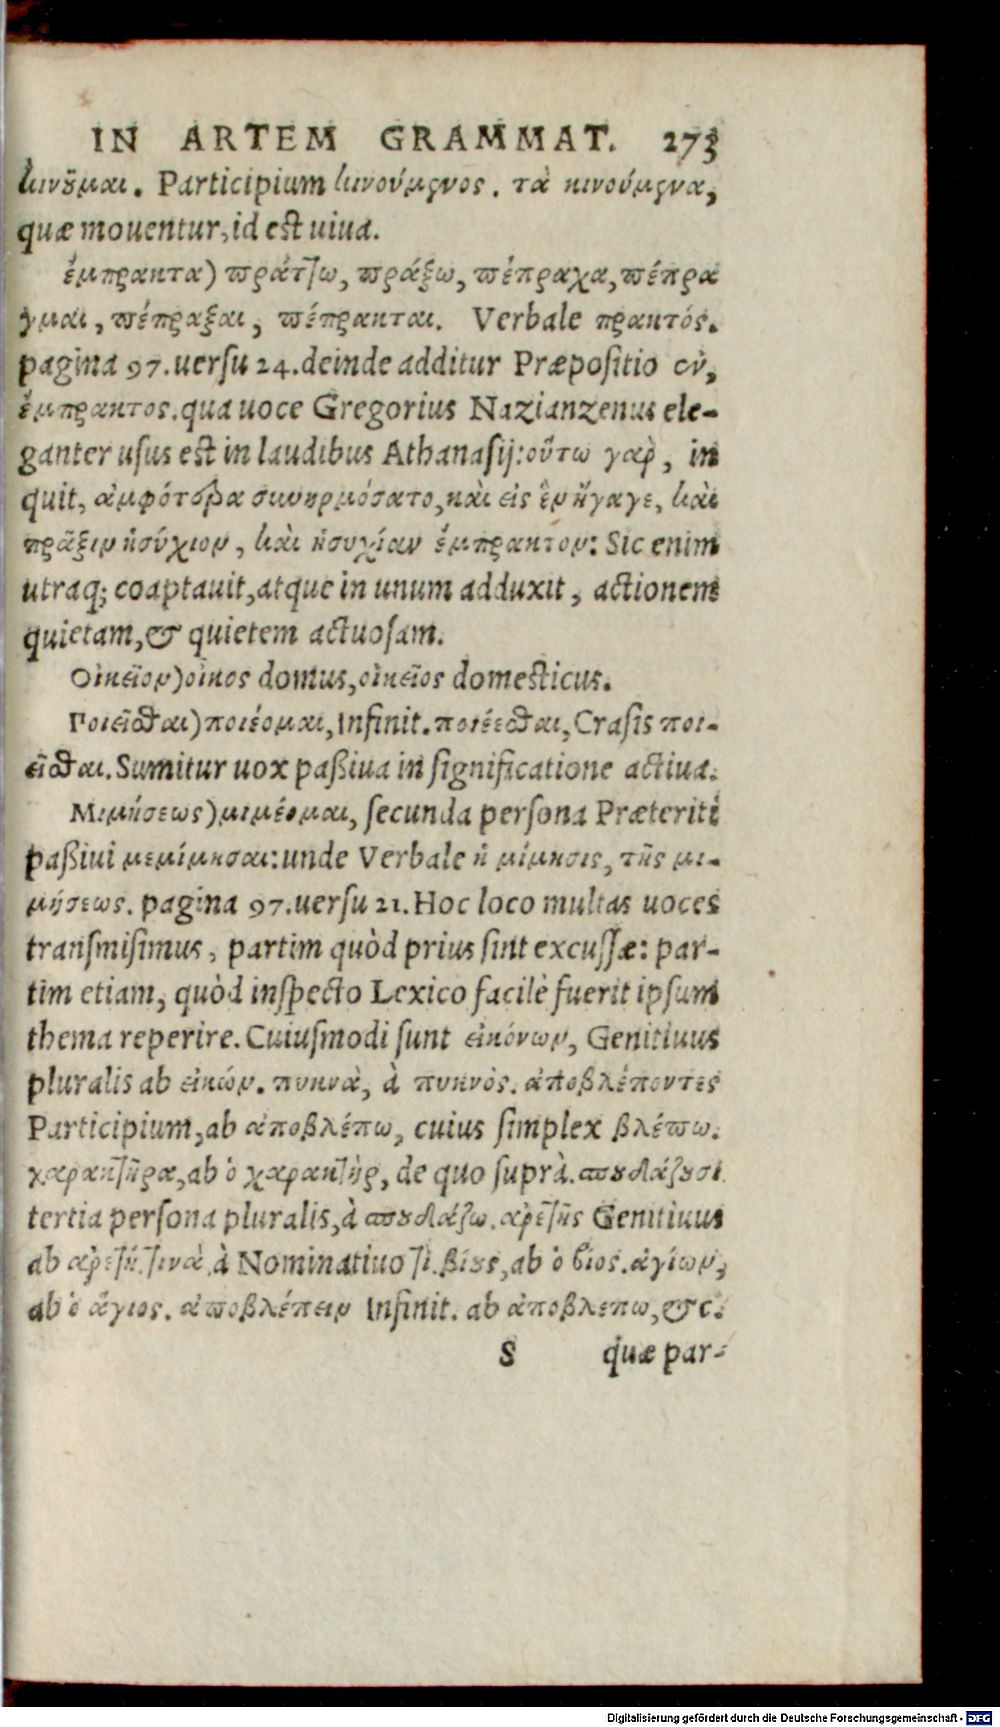 IN ARTEM GRAMMAT. 273
κινοῦμαι. Participium κινούμενος. τὰ κινούμενα,
quæ mouentur, id est uiua.
ἔμπρακτα) πράττω, πράξω, πέπραχα, πέπρα
γμαι, πέπραξαι, πέπρακται. Verbale πρακτός.
pagina 97. uersu 24. deinde additur Præpositio ἐν,
ἔμπρακτος. qua uoce Gregorius Nazianzenus ele-
ganter usus est in laudibus Athanasij: οὕτω γὰρ, in
quit, ἀμφότερα συνηρμόσατο, καὶ εἰς ἓν ἤγαγε, καὶ
πρᾶξιν ἡσύχιον, καὶ ἡσυχίαν ἔμπρακτον: Sic enim
utraq; coaptauit, atque in unum adduxit, actionem
quietam, & quietem actuosam.
Οἰκεῖον) οἶκος domus, οἰκεῖος domesticus.
Ποιεῖσθαι) ποιέομαι, Infinit. ποιέεσθαι, Crasis ποι-
εῖσθαι. Sumitur uox paßiua in significatione actiua.
Μιμήσεως) μιμέομαι, secunda persona Præteriti
paßiui μεμίμησαι: unde Verbale ἡ μίμησις, τῆς μι-
μήσεως. pagina 97. uersu 21. Hoc loco multas uoces
transmisimus, partim quòd prius sint excussæ: par-
tim etiam, quòd inspecto Lexico facilè fuerit ipsum
thema reperire. Cuiusmodi sunt εἰκόνων, Genitiuus
pluralis ab εἰκών. πυκνὰ, à πυκνὸς. ἀποβλέποντες
Participium, ab ἀποβλέπω, cuius simplex βλέπω.
χαρακτῆρα, ab ὁ χαρακτὴρ, de quo suprà. σπουδάζουσι
tertia persona pluralis, à σπουδάζω. ἀρετῆς Genitiuus
ab ἀρετή. τινὰ à Nominatiuo τὶ. βίους, ab ὁ βίος. ἁγίων,
ab ὁ ἅγιος. ἀποβλέπειν Infinit. ab ἀποβλεπω, &c.
S quæ par-
Digitalisierung gefördert durch die Deutsche Forschungsgemeinschaft - DFG